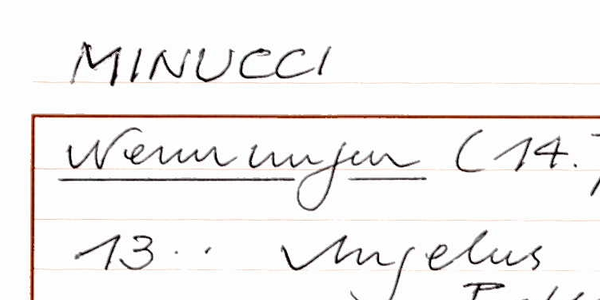 MINUCCI
Nennungen (14.
13.. Angelus